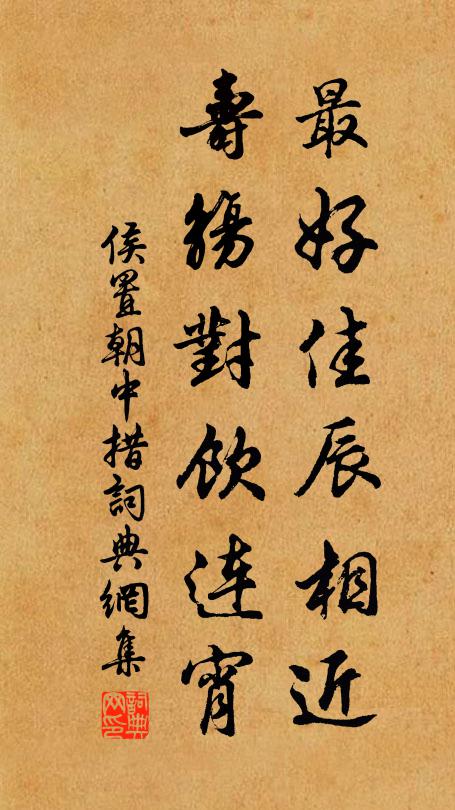 最好佳辰相近
壽觴對飲連宵
侯置朝中措詞典網集
詞典網印